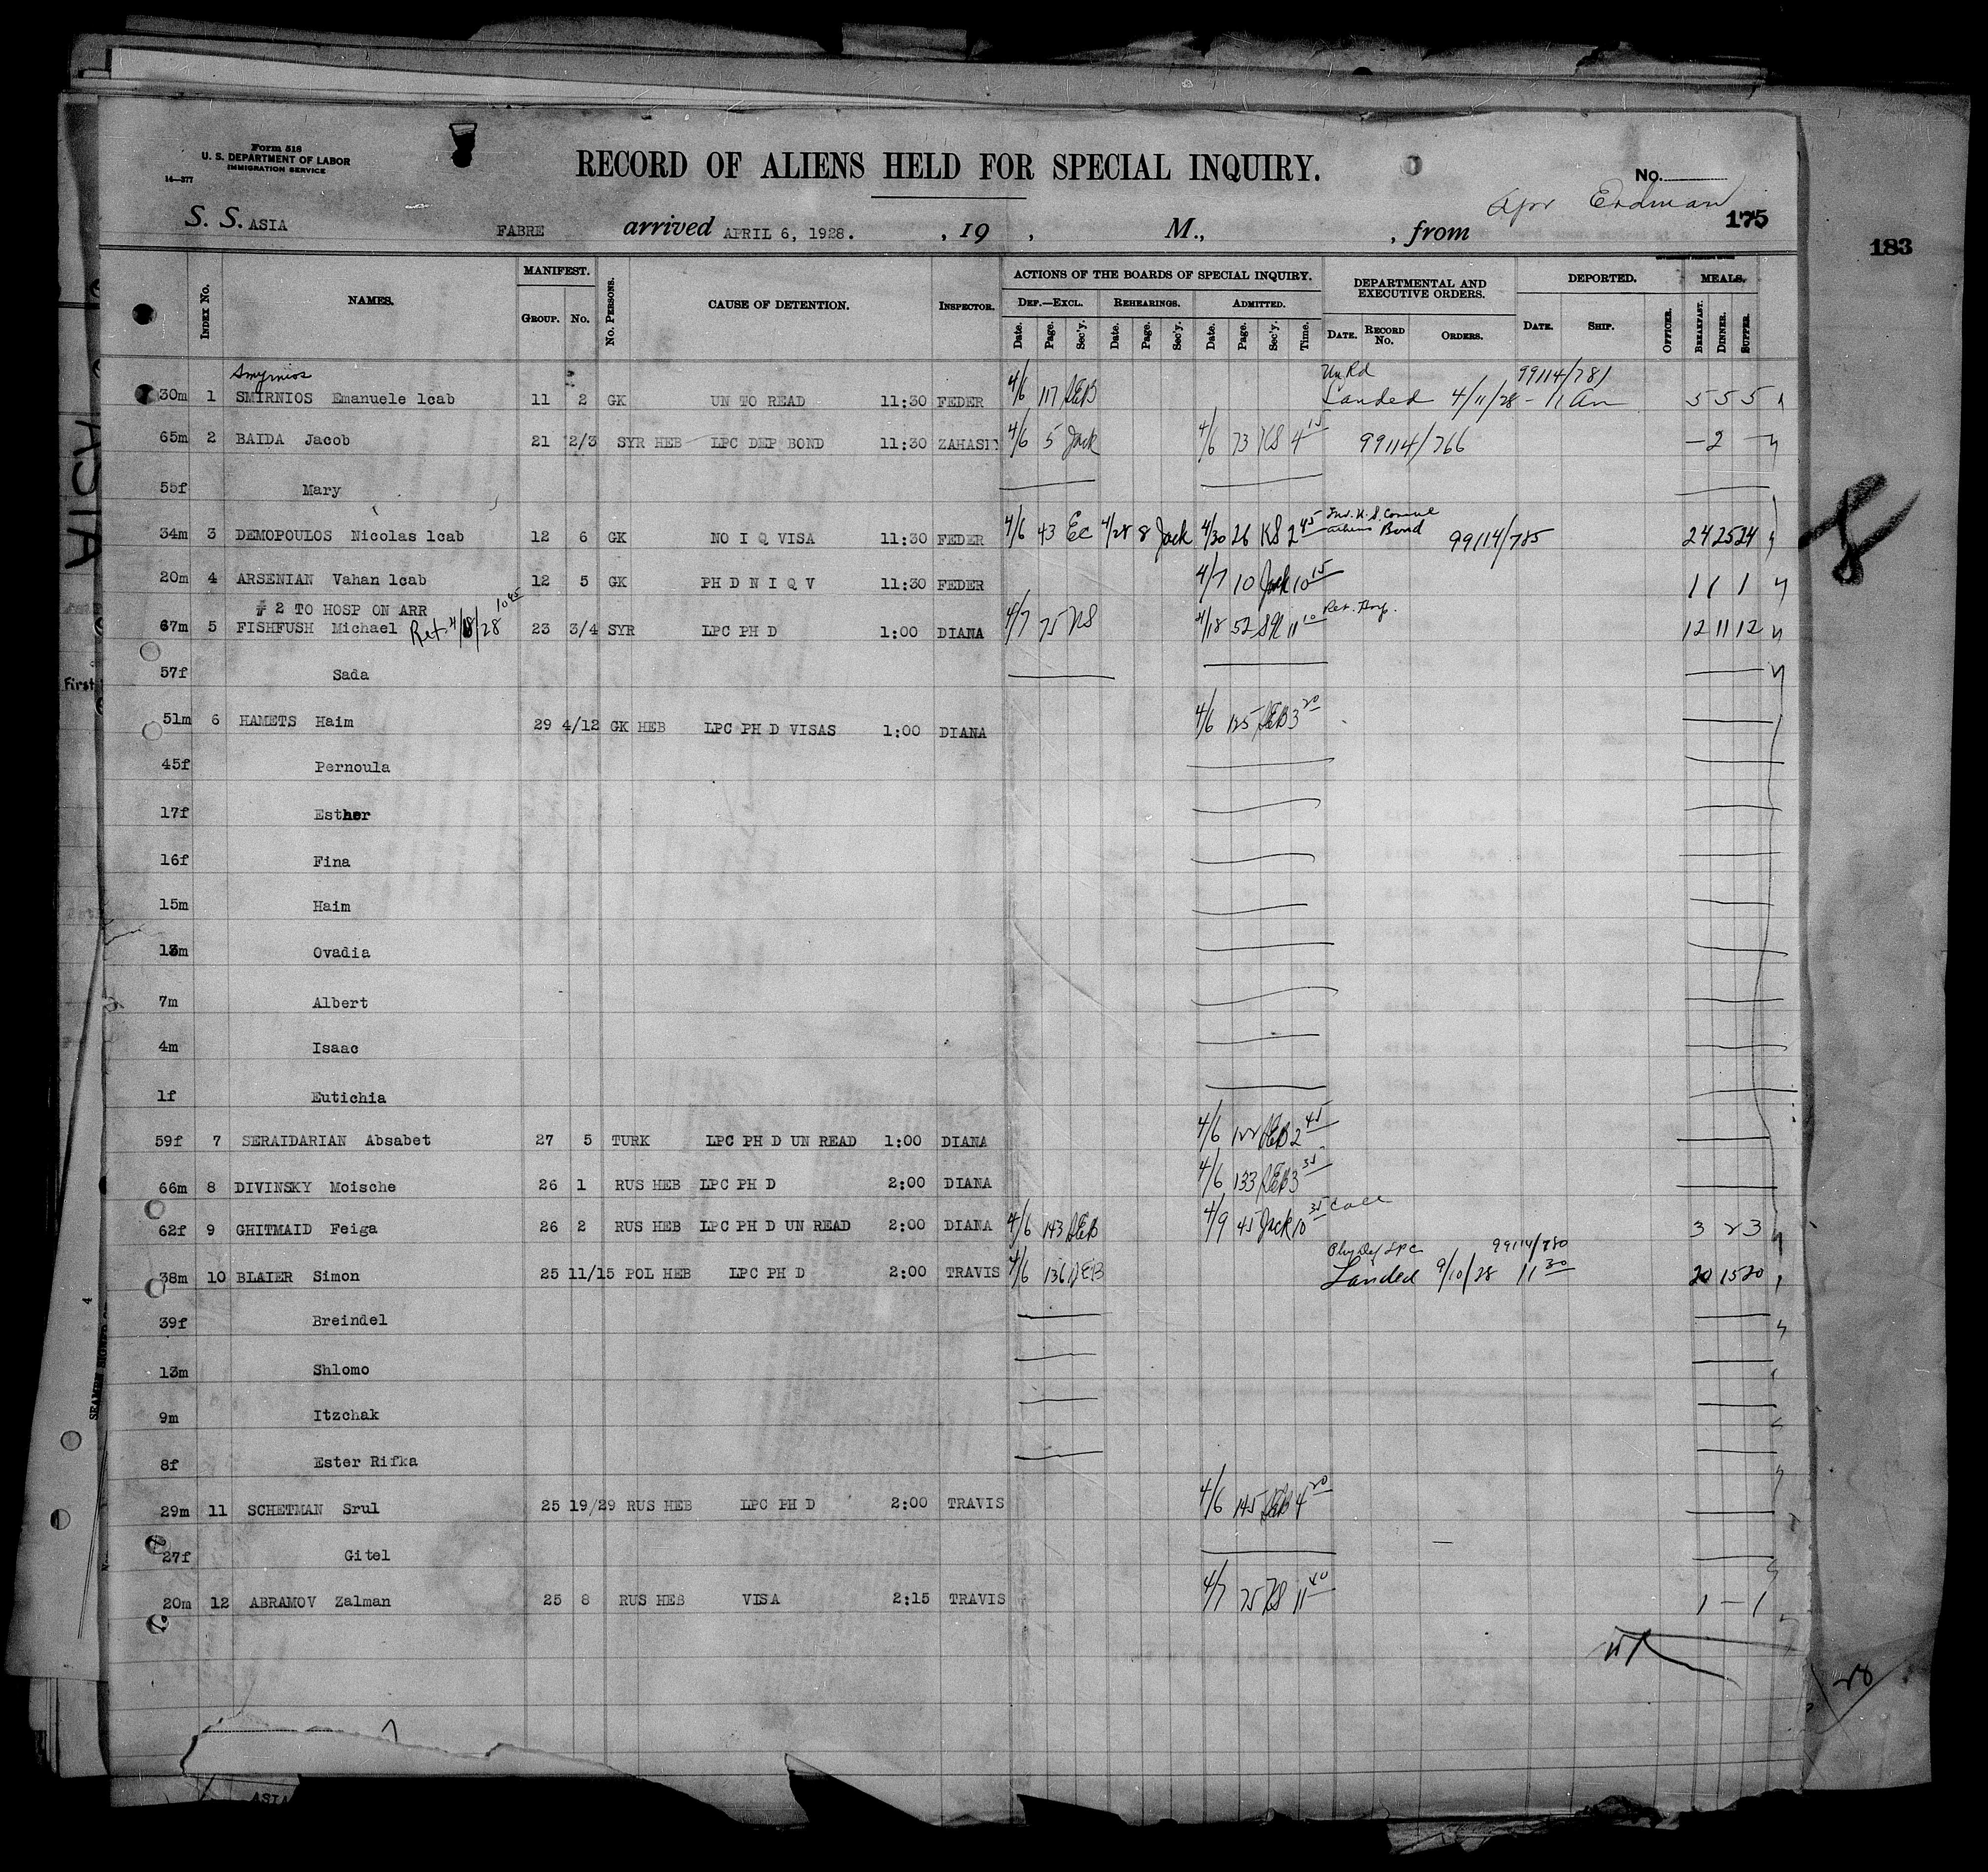 Form 518
U. S. DEPARTMENT OF LABOR
IMMIGRATION SERVICE
14—377
RECORD OF ALIENS HELD FOR SPECIAL INQUIRY.
No.
Erdman
S. S. ASIA FABRE arrived APRIL 6, 1928. , 19 , M., , from 175
183
INDEX No. NAMES. MANIFEST. GROUP. No. No. PERSONS. CAUSE OF DETENTION. INSPECTOR. ACTIONS OF THE BOARDS OF SPECIAL INQUIRY. DEPARTMENTAL AND EXECUTIVE ORDERS. DEPORTED. MEALS.
DEF.—EXCL. REHEARINGS. ADMITTED.
Date. Page. Sec'y. Date. Page. Sec'y. Date. Page. Sec'y. Time. DATE. RECORD No. ORDERS. DATE. SHIP. OFFICER. BREAKFAST. DINNER. SUPPER.
Smyrnios 99114/781
30m 1 SMIRNIOS Emanuele 1cab 11 2 GK UN TO READ 11:30 FEDER 4/6 117 DEB Landed 4/11/28 - 11 am 5 5 5
65m 2 BAIDA Jacob 21 2/3 SYR HEB LPC DEP BOND 11:30 ZAHASI 4/6 5 Jack 4/6 73 KS 4 15 99114/766 — 2 —
55f Mary
34m 3 DEMOPOULOS Nicolas 1cab 12 6 GK NO I Q VISA 11:30 FEDER 4/6 43 EC 4/28 8 Jack 4/30 26 KS 2 45 Bond 99114/785 24 25 24
20m 4 ARSENIAN Vahan 1cab 12 5 GK PH D N I Q V 11:30 FEDER 4/7 10 Jack 10 15 1 1 1
# 2 TO HOSP ON ARR
67m 5 FISHFUSH Michael Ret 4/18/28 10 45 23 3/4 SYR LPC PH D 1:00 DIANA 4/7 75 KS 4/18 52 11 10 12 11 12
57f Sada
51m 6 HAMETS Haim 29 4/12 GK HEB LPC PH D VISAS 1:00 DIANA 4/6 125 DEB 3 20
45f Pernoula
17f Esther
16f Fina
15m Haim
13m Ovadia
7m Albert
4m Isaac
1f Eutichia
59f 7 SERAIDARIAN Absabet 27 5 TURK LPC PH D UN READ 1:00 DIANA 4/6 122 DEB 2 45
66m 8 DIVINSKY Moische 26 1 RUS HEB LPC PH D 2:00 DIANA 4/6 133 DEB 3 35
62f 9 GHITMAID Feiga 26 2 RUS HEB LPC PH D UN READ 2:00 DIANA 4/6 143 DEB 4/9 45 Jack 10 35 3 2 3
99114/780
38m 10 BLAIER Simon 25 11/15 POL HEB LPC PH D 2:00 TRAVIS 4/6 136 DEB Landed 9/10/28 11 30 20 15 20
39f Breindel
13m Shlomo
9m Itzchak
8f Ester Rifka
29m 11 SCHETMAN Srul 25 19/29 RUS HEB LPC PH D 2:00 TRAVIS 4/6 145 DEB 4 20
27f Gitel
20m 12 ABRAMOV Zalman 25 8 RUS HEB VISA 2:15 TRAVIS 4/7 75 KS 11 40 1 — 1
8
ASIA
First
28
ASIA